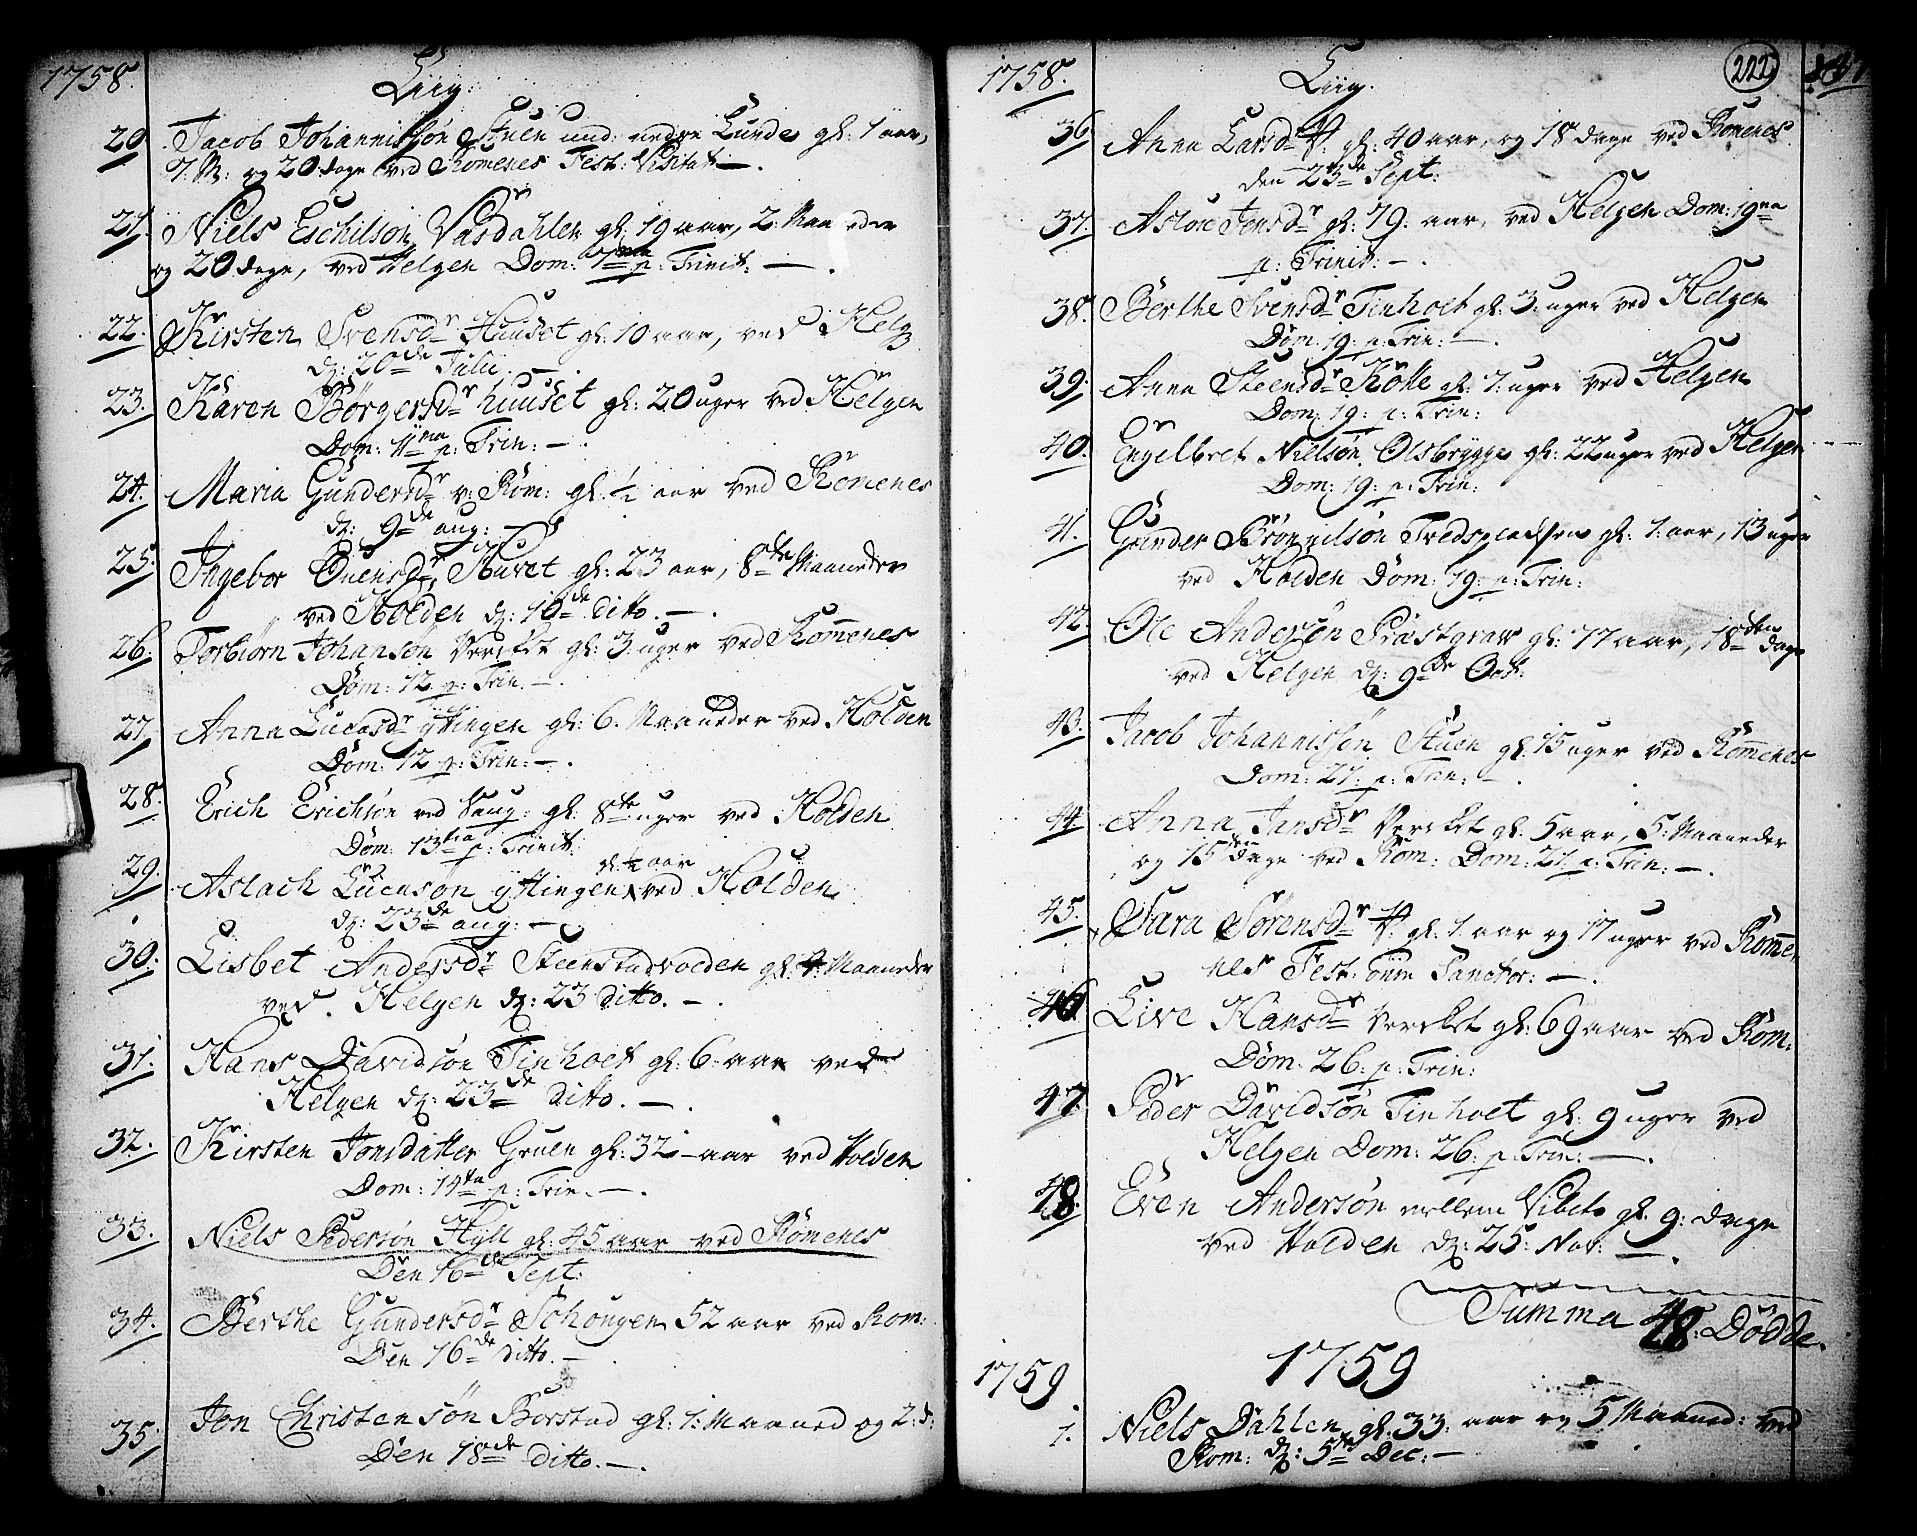 1758.
Liig:
20. Jacob Johannissøn Stuen und: nedre Lunde gl: 1 aar,
7. M: og 20 dage ved Romenes Fest: Visitat: —.
21. Niels Eschilsøn Vasdahlen gl: 19 aar, 2 Maaneder
og 20 dage, ved Helgen Dom: p: Trinit: —.
22. Kirsten Svensdr Huuset gl: 10 aar, ved Helg
d: 20de Julii. —.
23. Karen Börgersdr huuset gl: 20 uger ved Helgen
Dom: 11ma p: Trin: —.
24. Maria Gundersdr v: Rom: gl: ½ aar ved Romenes
d: 9de aug: —.
25. Ingebor Ouensdr gl: 23 aar, 8te Maaneder
ved Holden d: 10de ditto. —.
26. Torbiørn Johansøn Vercket gl: 3 uger ved Romenes
Dom: 12 p: Trin. —.
27. Anna Lucasdr ÿttingen gl: 6. Maaneder ved Holden
Dom: 12 p: Trin: —.
28. Erich Erichsøn ved Saug: gl: 8te uger ved Holden
Dom: 13tia p: Trinit:
29. Aslach Lucasøn ÿttingen gl: ½ aar ved Holden
d: 23de aug: —.
30. Lisbet Andersdr Steenstadvolden gl: 4: Maaneder
ved Helgen d: 23 ditto. —.
31. Hans Davidsøn Tinholt gl: 6 aar ved
Helgen d: 23de ditto. —.
32. Kirsten Jonsdatter Gruen gl: 32 aar ved Holden
Dom: 14ta p: Trin. —.
33. Niels Pedersøn Hyll gl: 45 aar ved Romenes
Den 16de Sept:
34. Berthe Gundersdr Schougen 52 aar ved Rom:
Den 16de ditto. —
35. Jon Christensøn Borstad gl: 1: Maaned og 2: d:
Den 18de ditto. —.
1758.
Liig.
222
36. Anna Larsdr V. gl: 40 aar, og 18 dage ved Romenes
den 23de Sept:
37. Asloue Jensdr gl: 79. aar, ved Helgen Dom: 19na
p: Trinit: —.
38. Berthe Svensdr Tinholt gl: 3: uger ved Helgen
Dom: 19: p: Trin: —.
39. Anna Steensdr Kolle gl: 7: uger ved Helgen
Dom: 19: p: Trin:
40. Engelbret Nielsøn Olsbrygge gl: 22 uger ved Helgen
Dom: 19: p: Trin:
41. Gunder Brønnilsøn gl: 1. aar, 13 uger
ved Holden Dom: 19: p: Trin:
42. Ole Andersøn Præstgrav gl: 77 aar, 18ten dage
ved Helgen d: 9de Oct:
43. Jacob Johannissøn Stuen gl: 15 uger ved Romenes
Dom: 21: p: Trin: —.
44. Anna Jansdr Vercket gl: 5 aar, 5: Maaneder
og 15 dage ved Rom: Dom: 21 p: Trin: —.
45. Sara Sørensdr V. gl: 1 aar og 17 uger ved Rome
nes Fest: Omn Sanctor: —.
46. Live Hansdr Vercket gl: 69 aar ved Rom:
Dom: 26: p: Trin:
47. Peder Davidsøn Tinholt gl: 9 uger ved
Helgen Dom: 26: p: Trin: —.
48. Even Andersøn mellem Vibeto gl: 9: dage
ved Holden d: 25: Nov: —.
Summa 48: Dødde.
1759
1759
1. Niels Dahlen gl: 33 aar og 5 Maaned: ved
Rom: d: 5te Dec: —